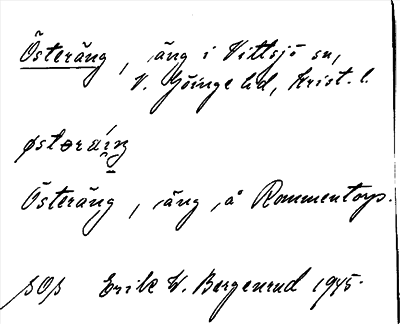 Österäng, äng i Vittsjö sn,
V. Göinge hd, Krist. l.
Österäng, äng, å Rommentorp.
SOS Erik W. Bergenrud 1945.